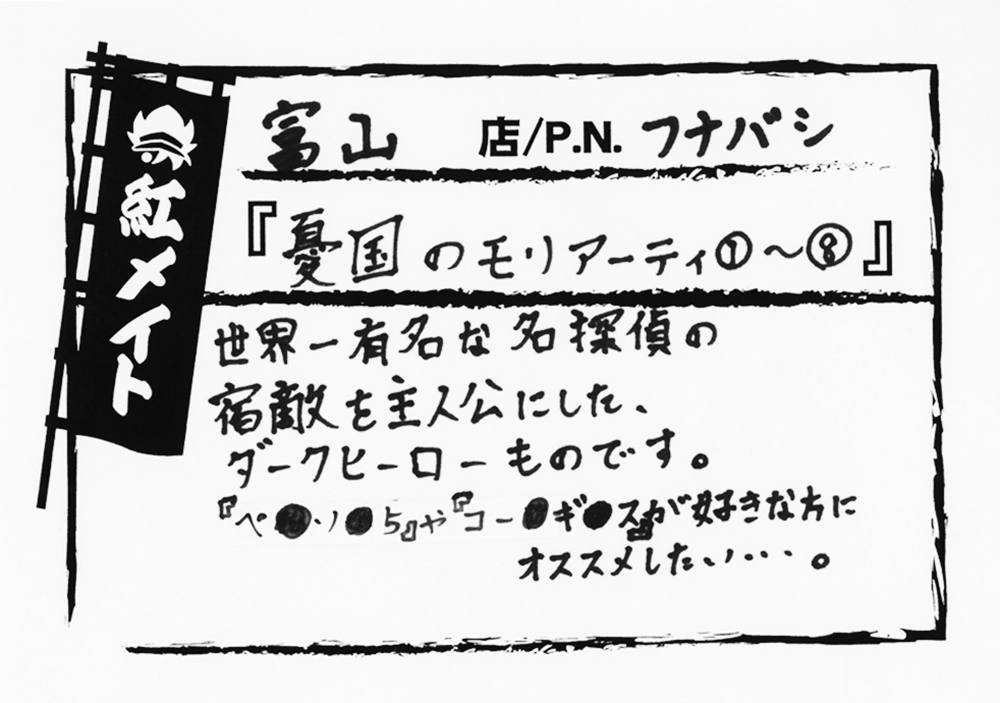 紅メイト
富山 店/P.N. フナバシ
『憂国のモリアーティ①～⑧』
世界一有名な名探偵の
宿敵を主人公にした、
ダークヒーローものです。
『ペ●ソ●5』や『コー●ギ●ス』が好きな方に
オススメしたい・・・。